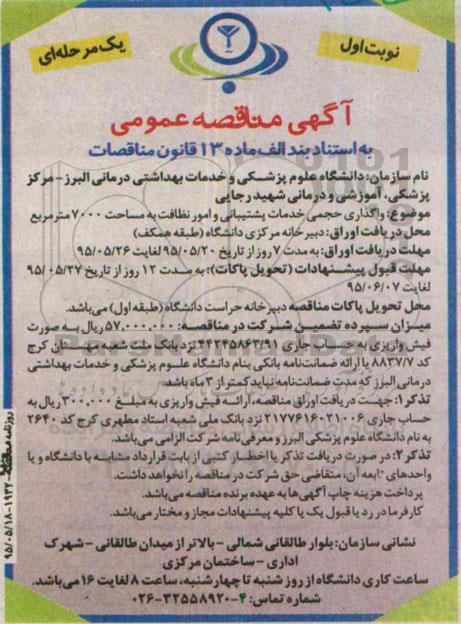 نوبت اول
یک مرحله‌ای
آگهی مناقصه عمومی
به استناد بند الف ماده ۱۳ قانون مناقصات
نام سازمان: دانشگاه علوم پزشکی و خدمات بهداشتی درمانی البرز - مرکز
پزشکی، آموزشی و درمانی شهید رجایی
موضوع: واگذاری حجمی خدمات پشتیبانی و امور نظافت به مساحت ۷۰۰۰ مترمربع
محل دریافت اوراق: دبیرخانه مرکزی دانشگاه (طبقه همکف)
مهلت دریافت اوراق: به مدت ۷ روز از تاریخ ۹۵/۰۵/۲۰ لغایت ۹۵/۰۵/۲۶
مهلت قبول پیشنهادات (تحویل پاکات): به مدت ۱۲ روز از تاریخ ۹۵/۰۵/۲۷
لغایت ۹۵/۰۶/۰۷
محل تحویل پاکات مناقصه دبیرخانه حراست دانشگاه (طبقه اول) می‌باشد.
میزان سپرده تضمین شرکت در مناقصه: ۵۷,۰۰۰,۰۰۰ ریال به صورت
فیش واریزی به حساب جاری ۴۴۲۴۵۸۶۳/۹۱ نزد بانک ملت شعبه مهستان کرج
کد ۸۸۳۷/۷ یا ارائه ضمانت‌نامه بانکی بنام دانشگاه علوم پزشکی و خدمات بهداشتی
درمانی البرز که مدت ضمانت‌نامه نباید کمتر از ۳ ماه باشد.
تذکر۱: جهت دریافت اوراق مناقصه، ارائه فیش واریزی به مبلغ ۳۰۰,۰۰۰ ریال به
حساب جاری ۲۱۷۷۶۱۶۰۲۱۰۰۶ نزد بانک ملی شعبه استاد مطهری کرج کد ۲۶۴۰
به نام دانشگاه علوم پزشکی البرز و معرفی نامه شرکت الزامی می‌باشد.
تذکر ۲: در صورت دریافت تذکر یا اخطار کتبی از بابت قرارداد مشابه با دانشگاه و یا
واحدهای تابعه آن، متقاضی حق شرکت در مناقصه را نخواهد داشت.
پرداخت هزینه چاپ آگهی‌ها به عهده برنده مناقصه می‌باشد.
کارفرما در رد یا قبول یک یا کلیه پیشنهادات مجاز و مختار می‌باشد.
نشانی سازمان: بلوار طالقانی شمالی - بالاتر از میدان طالقانی - شهرک
اداری - ساختمان مرکزی
ساعت کاری دانشگاه از روز شنبه تا چهارشنبه، ساعت ۸ لغایت ۱۶ می‌باشد.
شماره تماس: ۴-۳۲۵۵۸۹۲۰-۰۲۶
روزنامه مناقصه ۱۹۳۲-۹۵/۰۵/۱۸